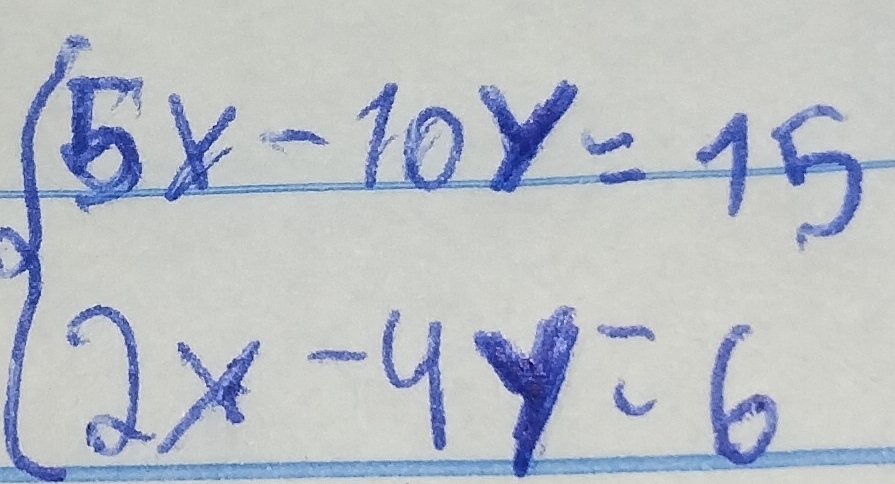 5x - 10y = 15
2x - 4y = 6